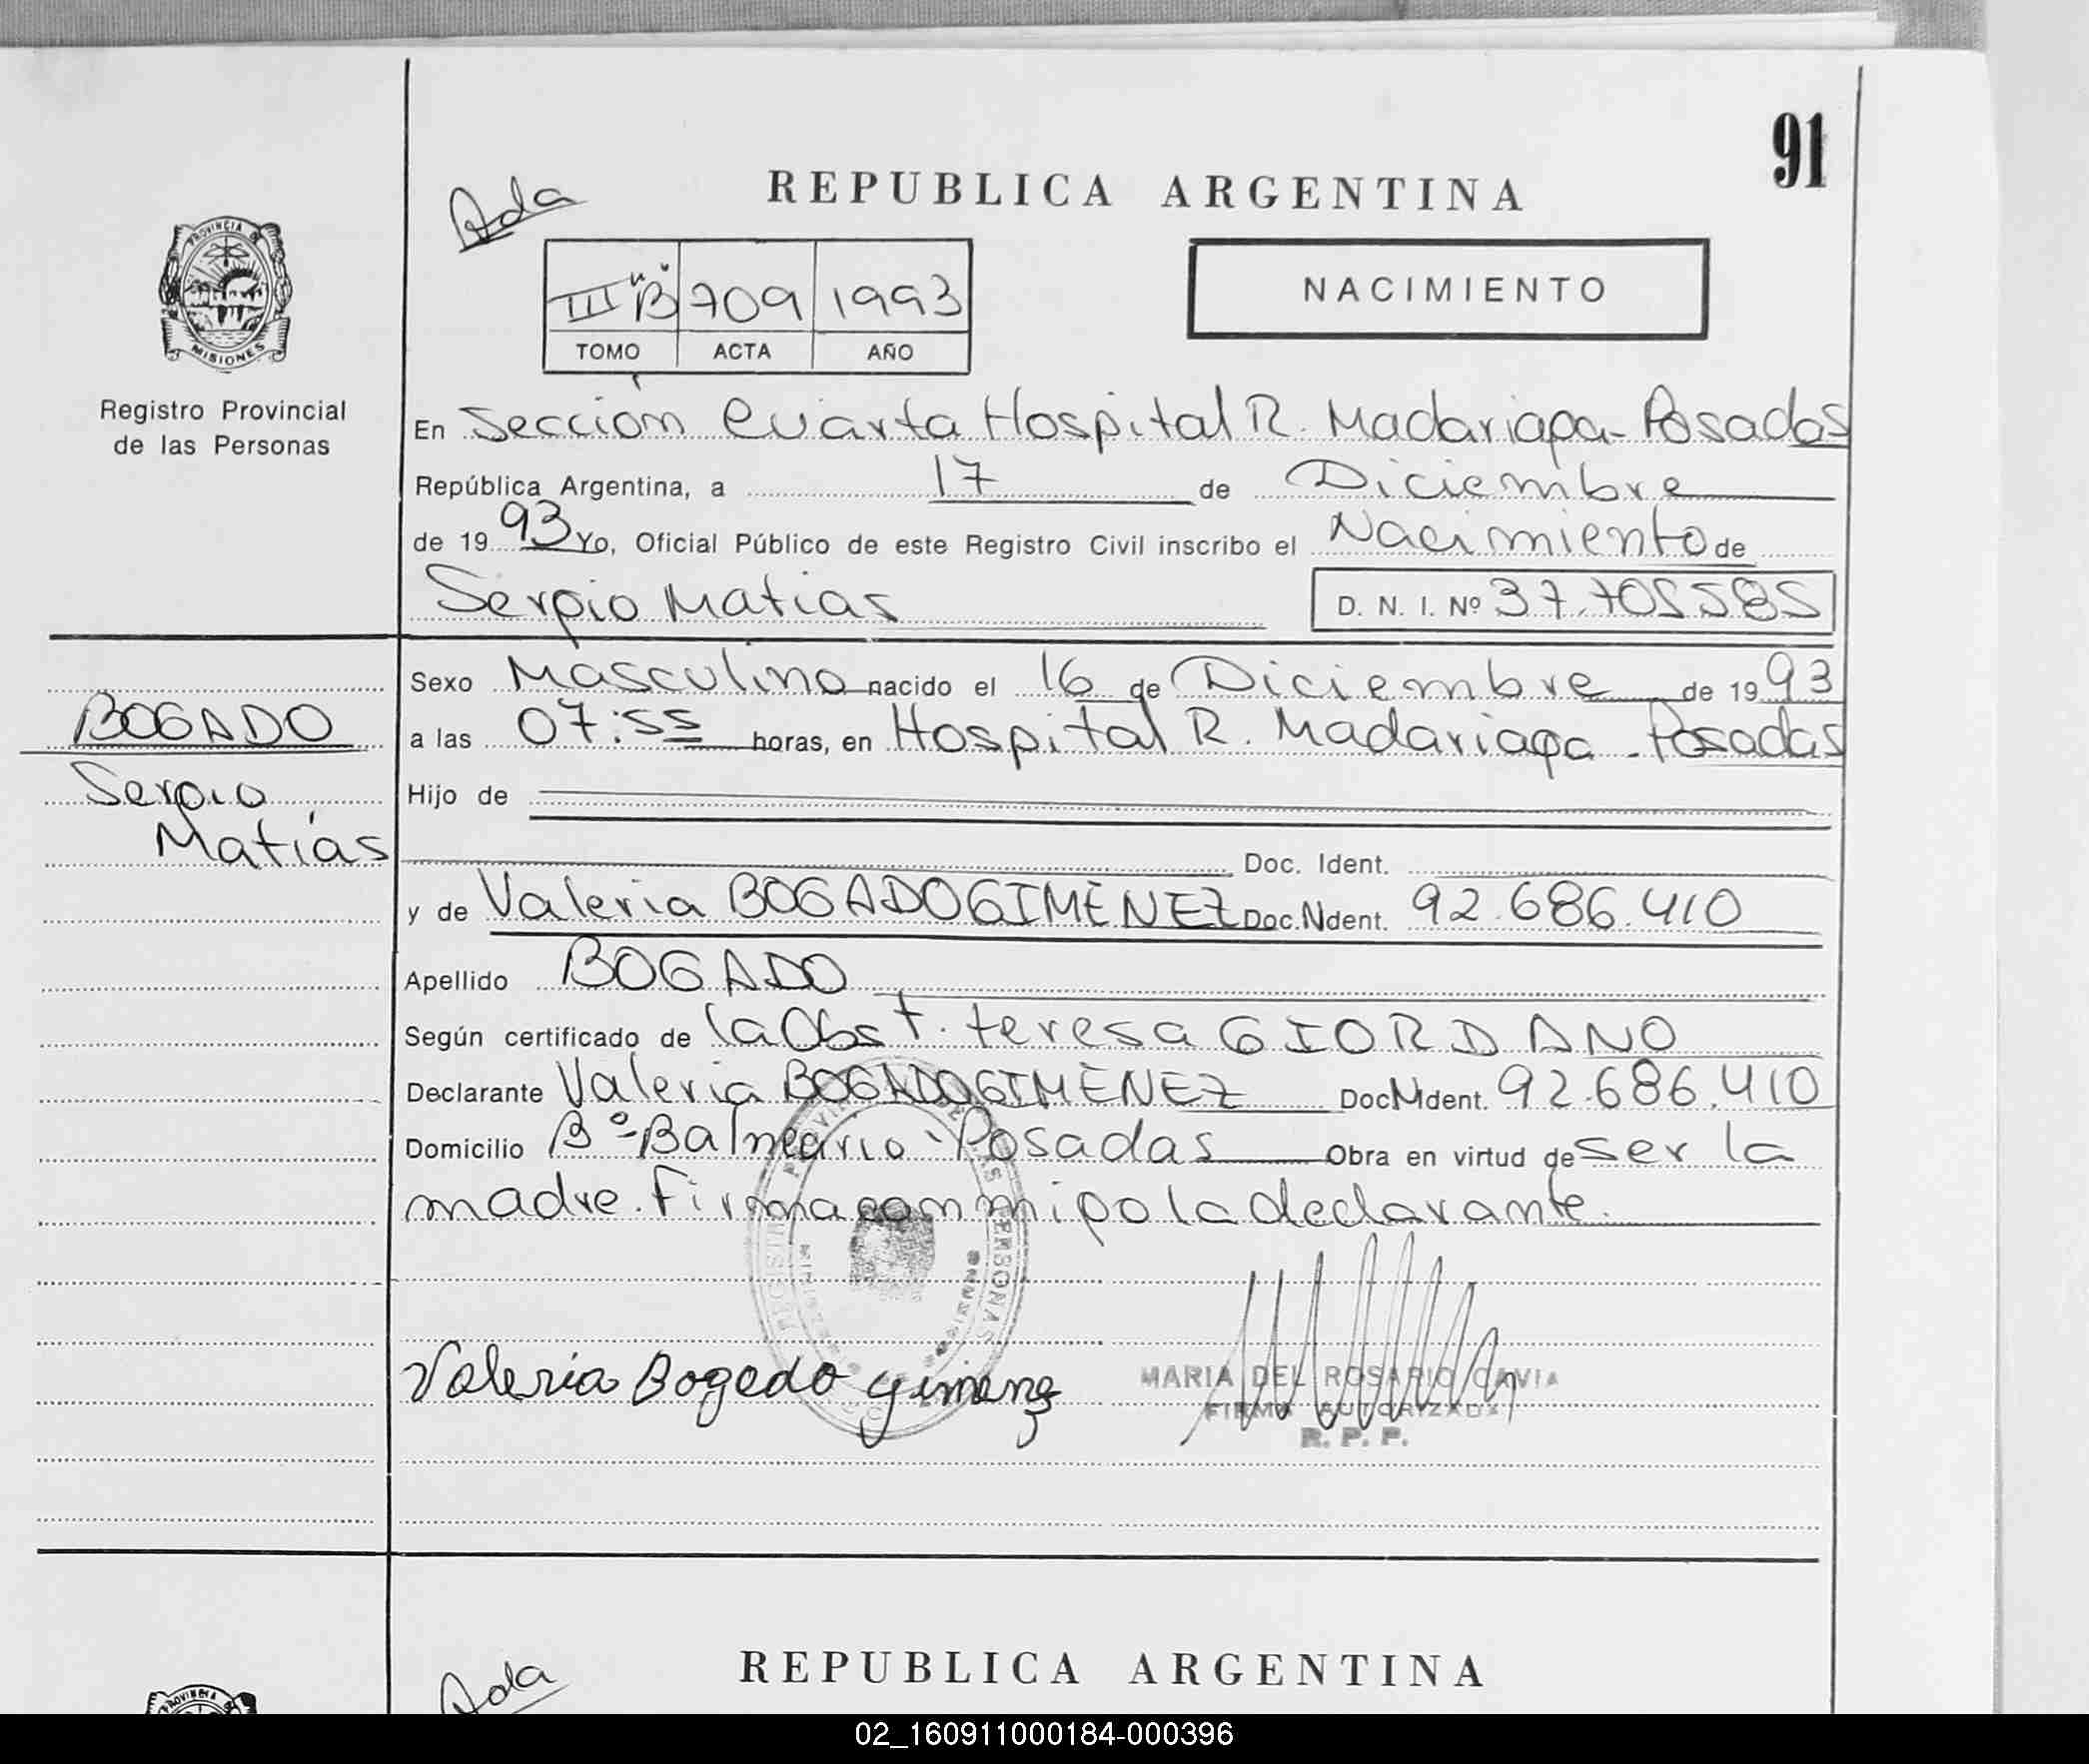 91
REPUBLICA ARGENTINA
Ada
III "B" 709 1993
TOMO ACTA AÑO
NACIMIENTO
PROVINCIA DE
MISIONES
Registro Provincial
de las Personas
En Sección Cuarta Hospital R. Madariaga - Posadas
República Argentina, a 17 de Diciembre
de 19 93 Yo, Oficial Público de este Registro Civil inscribo el Nacimiento de
Sergio Matias D. N. I. Nº 37.705585
Sexo Masculino nacido el 16 de Diciembre de 19 93
BOGADO
a las 07:55 horas, en Hospital R. Madariaga - Posadas
Sergio
Hijo de
Matías
Doc. Ident.
y de Valeria BOGADO GIMÉNEZ Doc. Ndent. 92.686.410
Apellido BOGADO
Según certificado de la Obst. teresa GIORDANO
Declarante Valeria BOGADO GIMÉNEZ Doc Ndent. 92.686.410
Domicilio Bº - Balneario - Posadas Obra en virtud de ser la
madre. Firma conmipo la declarante.
Valeria Bogado gimenez
MARIA DEL ROSARIO CAVIA
FIRMA AUTORIZADA
R. P. P.
REPUBLICA ARGENTINA
Ada
PROVINCIA
02_160911000184-000396